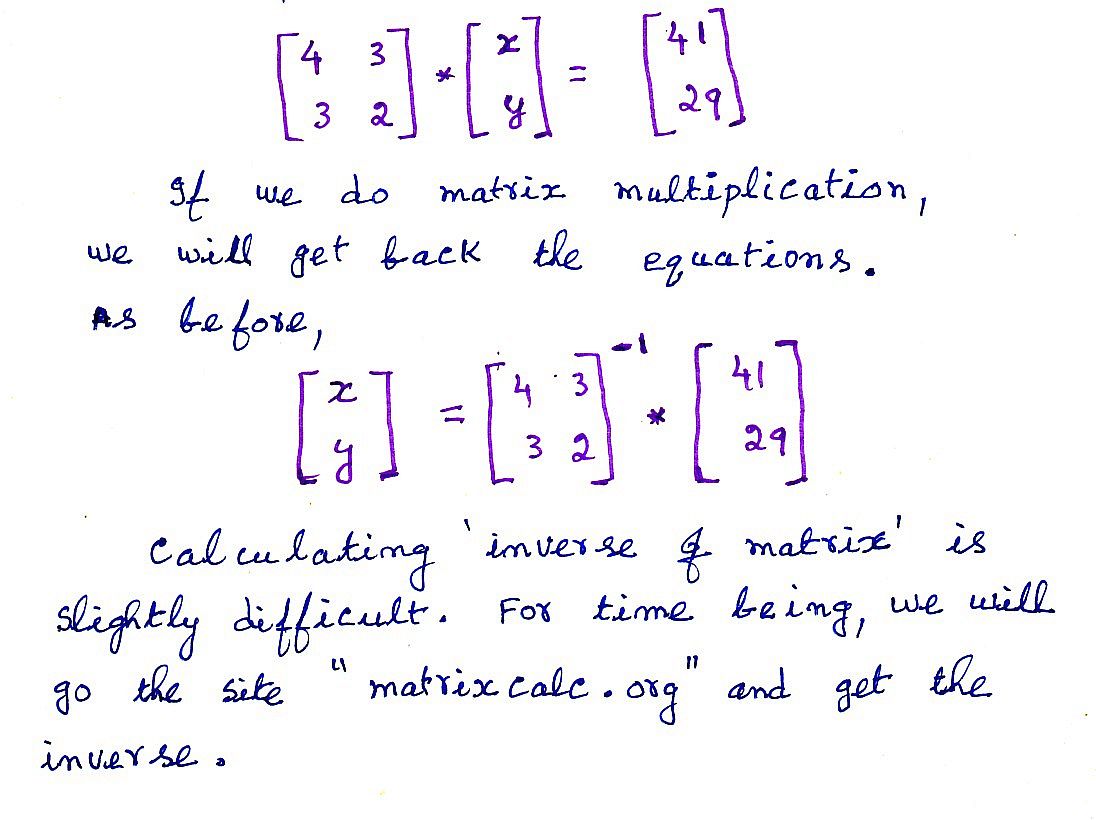 [4 3
3 2] * [x
y] = [41
29]
If we do matrix multiplication,
we will get back the equations.
As before,
[x
y] = [4 3
3 2]⁻¹ * [41
29]
Calculating 'inverse of matrix' is
slightly difficult. For time being, we will
go the site "matrixcalc.org" and get the
inverse.